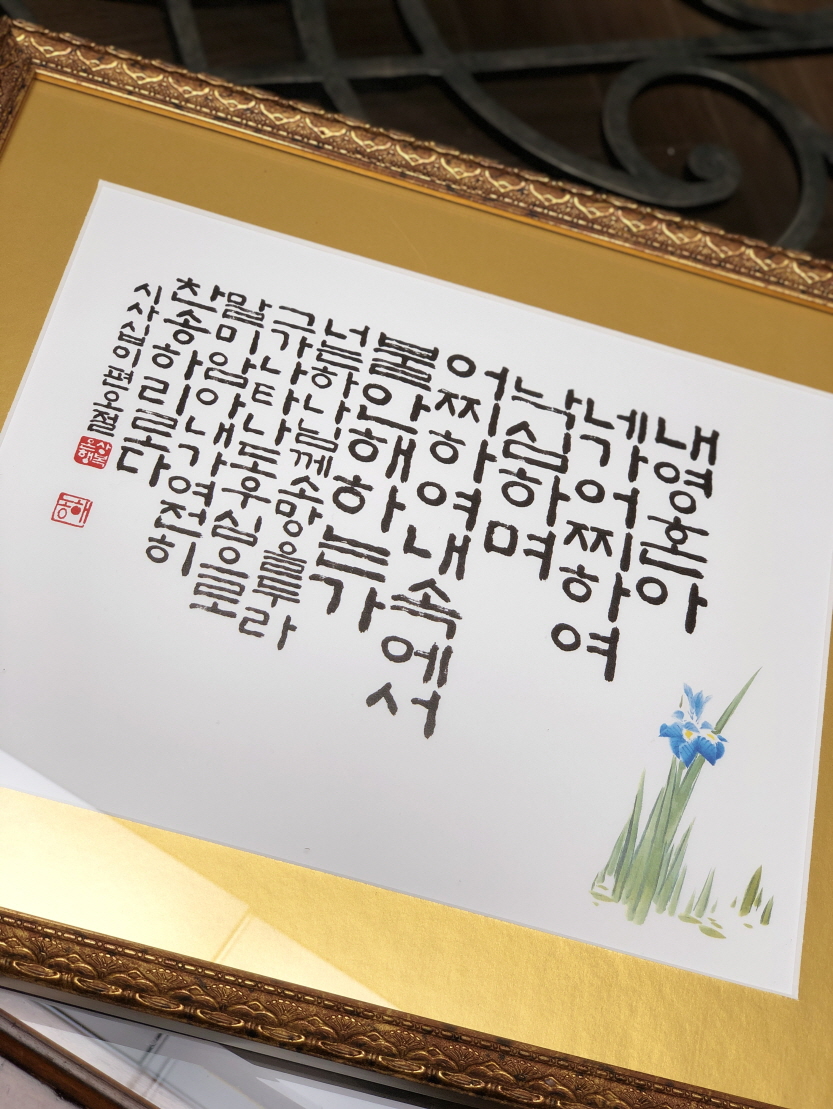 내영혼아
네가어찌하여
낙심하며
어찌하여내속에서
불안해하는가
너는하나님께소망을두라
그가나타나도우심으로
말미암아내가여전히
찬송하리로다
시사십이편